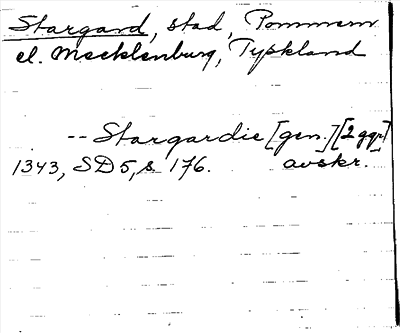 Stargard, stad, Pommern
el. Mecklenburg, Tyskland
-- Stargardie [gen.] [2 ggr]
1343, SD 5, s. 176. avskr.